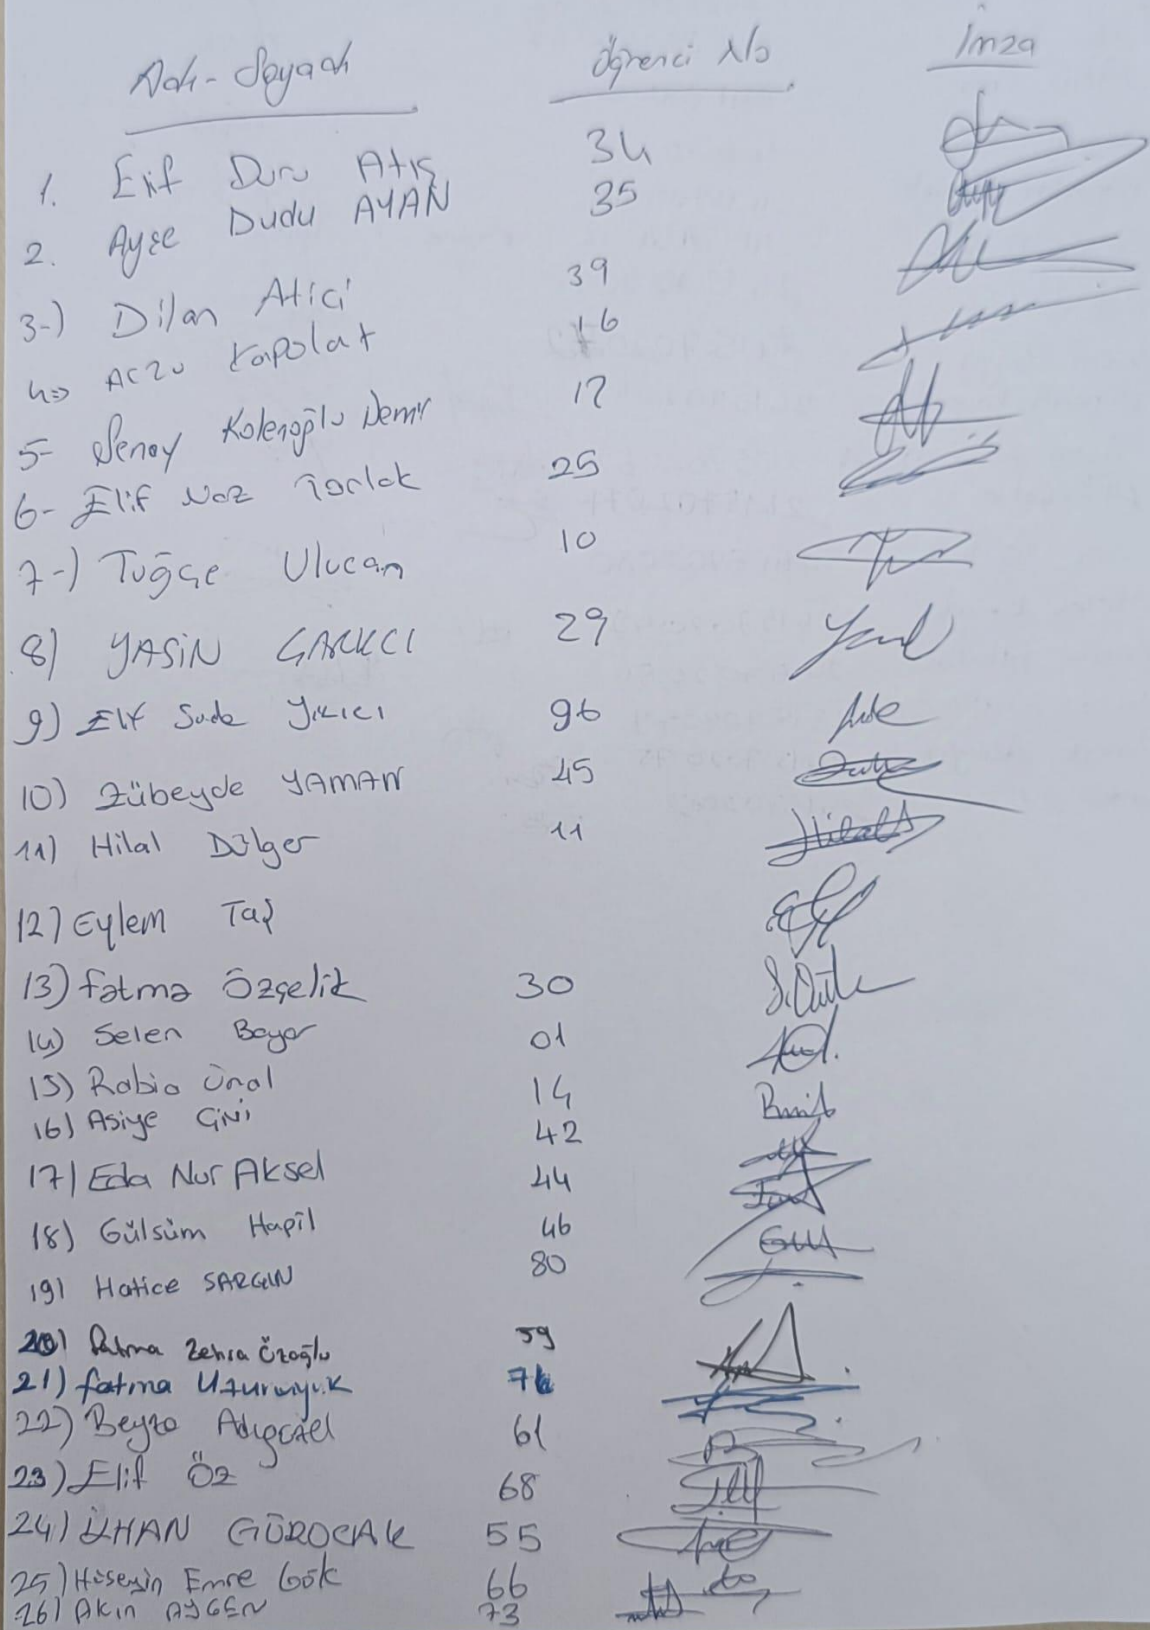 Adı-Soyadı Öğrenci No İmza
1. Elif Duru Atış 34
2. Ayşe Dudu AYAN 35
3-) Dilan Atici 39
4=> Arzu Kapolat 16
5- Şenay Kolenoğlu Demir 17
6- Elif Naz Torlak 25
7-) Tuğçe Ulucan 10
8) YASİN ÇARKCI 29
9) Elif Sude Yıkıcı 96
10) Zübeyde YAMAN 45
11) Hilal Dülger 11
12) Eylem Taş
13) Fatma Özçelik 30
14) Selen Bayar 01
15) Rabia Ünal 14
16) Asiye Çivi 42
17) Eda Nur Aksel 44
18) Gülsüm Hapil 46
19) Hatice SARGIN 80
20) Fatma Zehra Özoğlu 59
21) Fatma 76
22) Beyza Adıgüzel 61
23) Elif Öz 68
24) İLHAN GÜROCAK 55
25) Hüseyin Emre Gök 66
26) AKın AYGEN 73